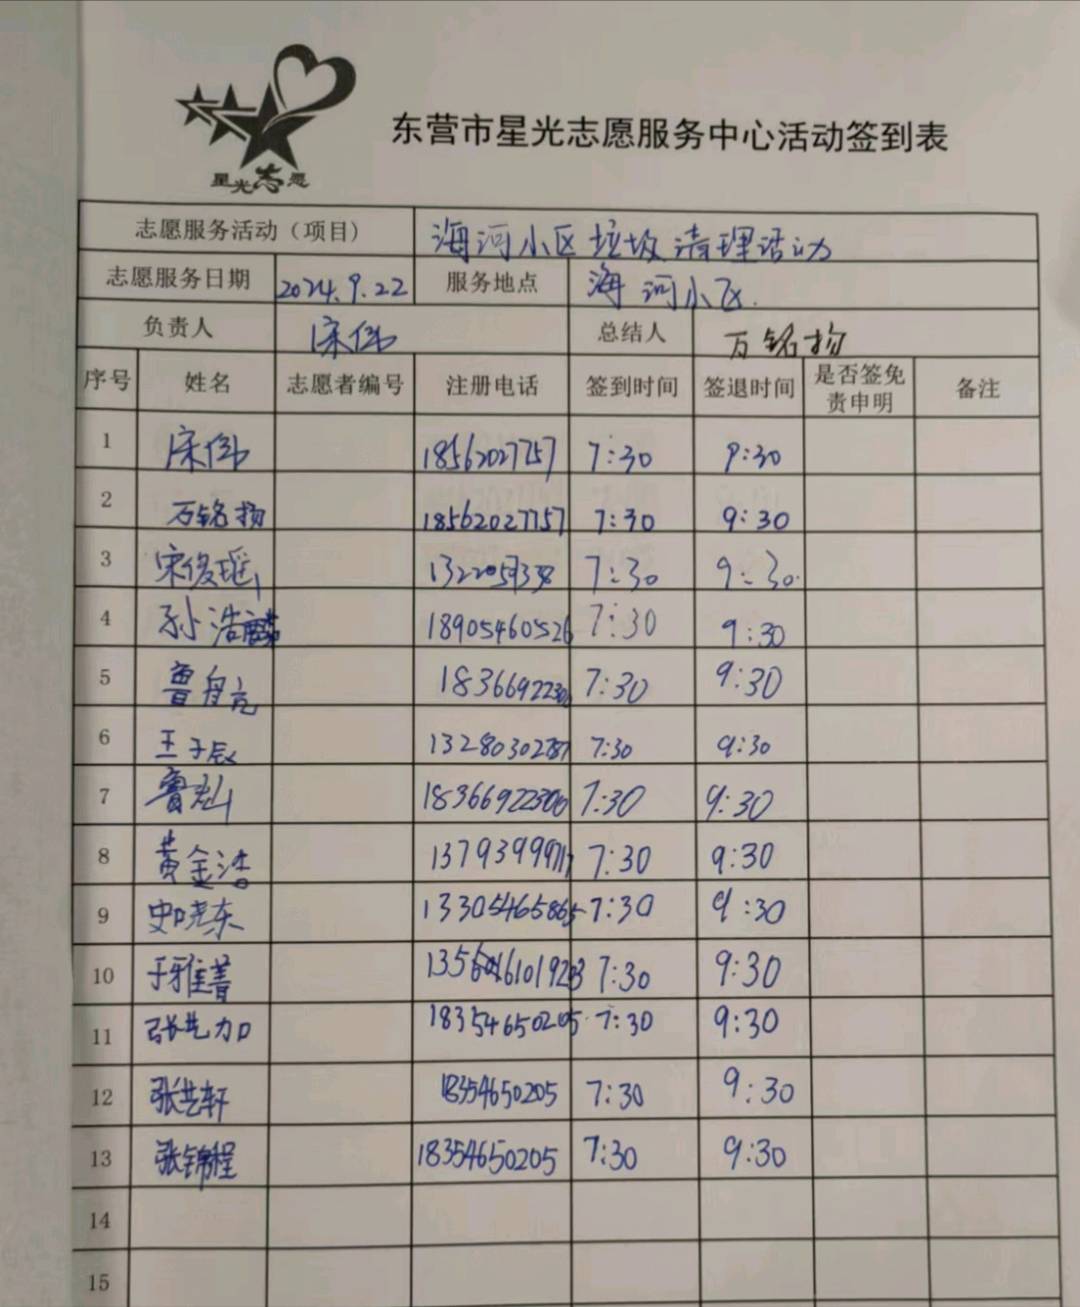 星光志愿
东营市星光志愿服务中心活动签到表
志愿服务活动（项目） 海河小区垃圾清理活动
志愿服务日期 2024.9.22 服务地点 海河小区.
负责人 宋伟 总结人 万铭扬
序号 姓名 志愿者编号 注册电话 签到时间 签退时间 是否签免责申明 备注
1 宋伟 18562027757 7:30 9:30
2 万铭扬 18562027757 7:30 9:30
3 宋俊瑶 7:30 9:30
4 孙浩麟 18905460526 7:30 9:30
5 鲁舟亮 7:30 9:30
6 王子辰 13280302787 7:30 9:30
7 鲁灿 18366922300 7:30 9:30
8 黄金浩 7:30 9:30
9 13305465865 7:30 9:30
10 于雅菁 7:30 9:30
11 张艺加 18354650205 7:30 9:30
12 张艺轩 18354650205 7:30 9:30
13 张锦程 18354650205 7:30 9:30
14
15